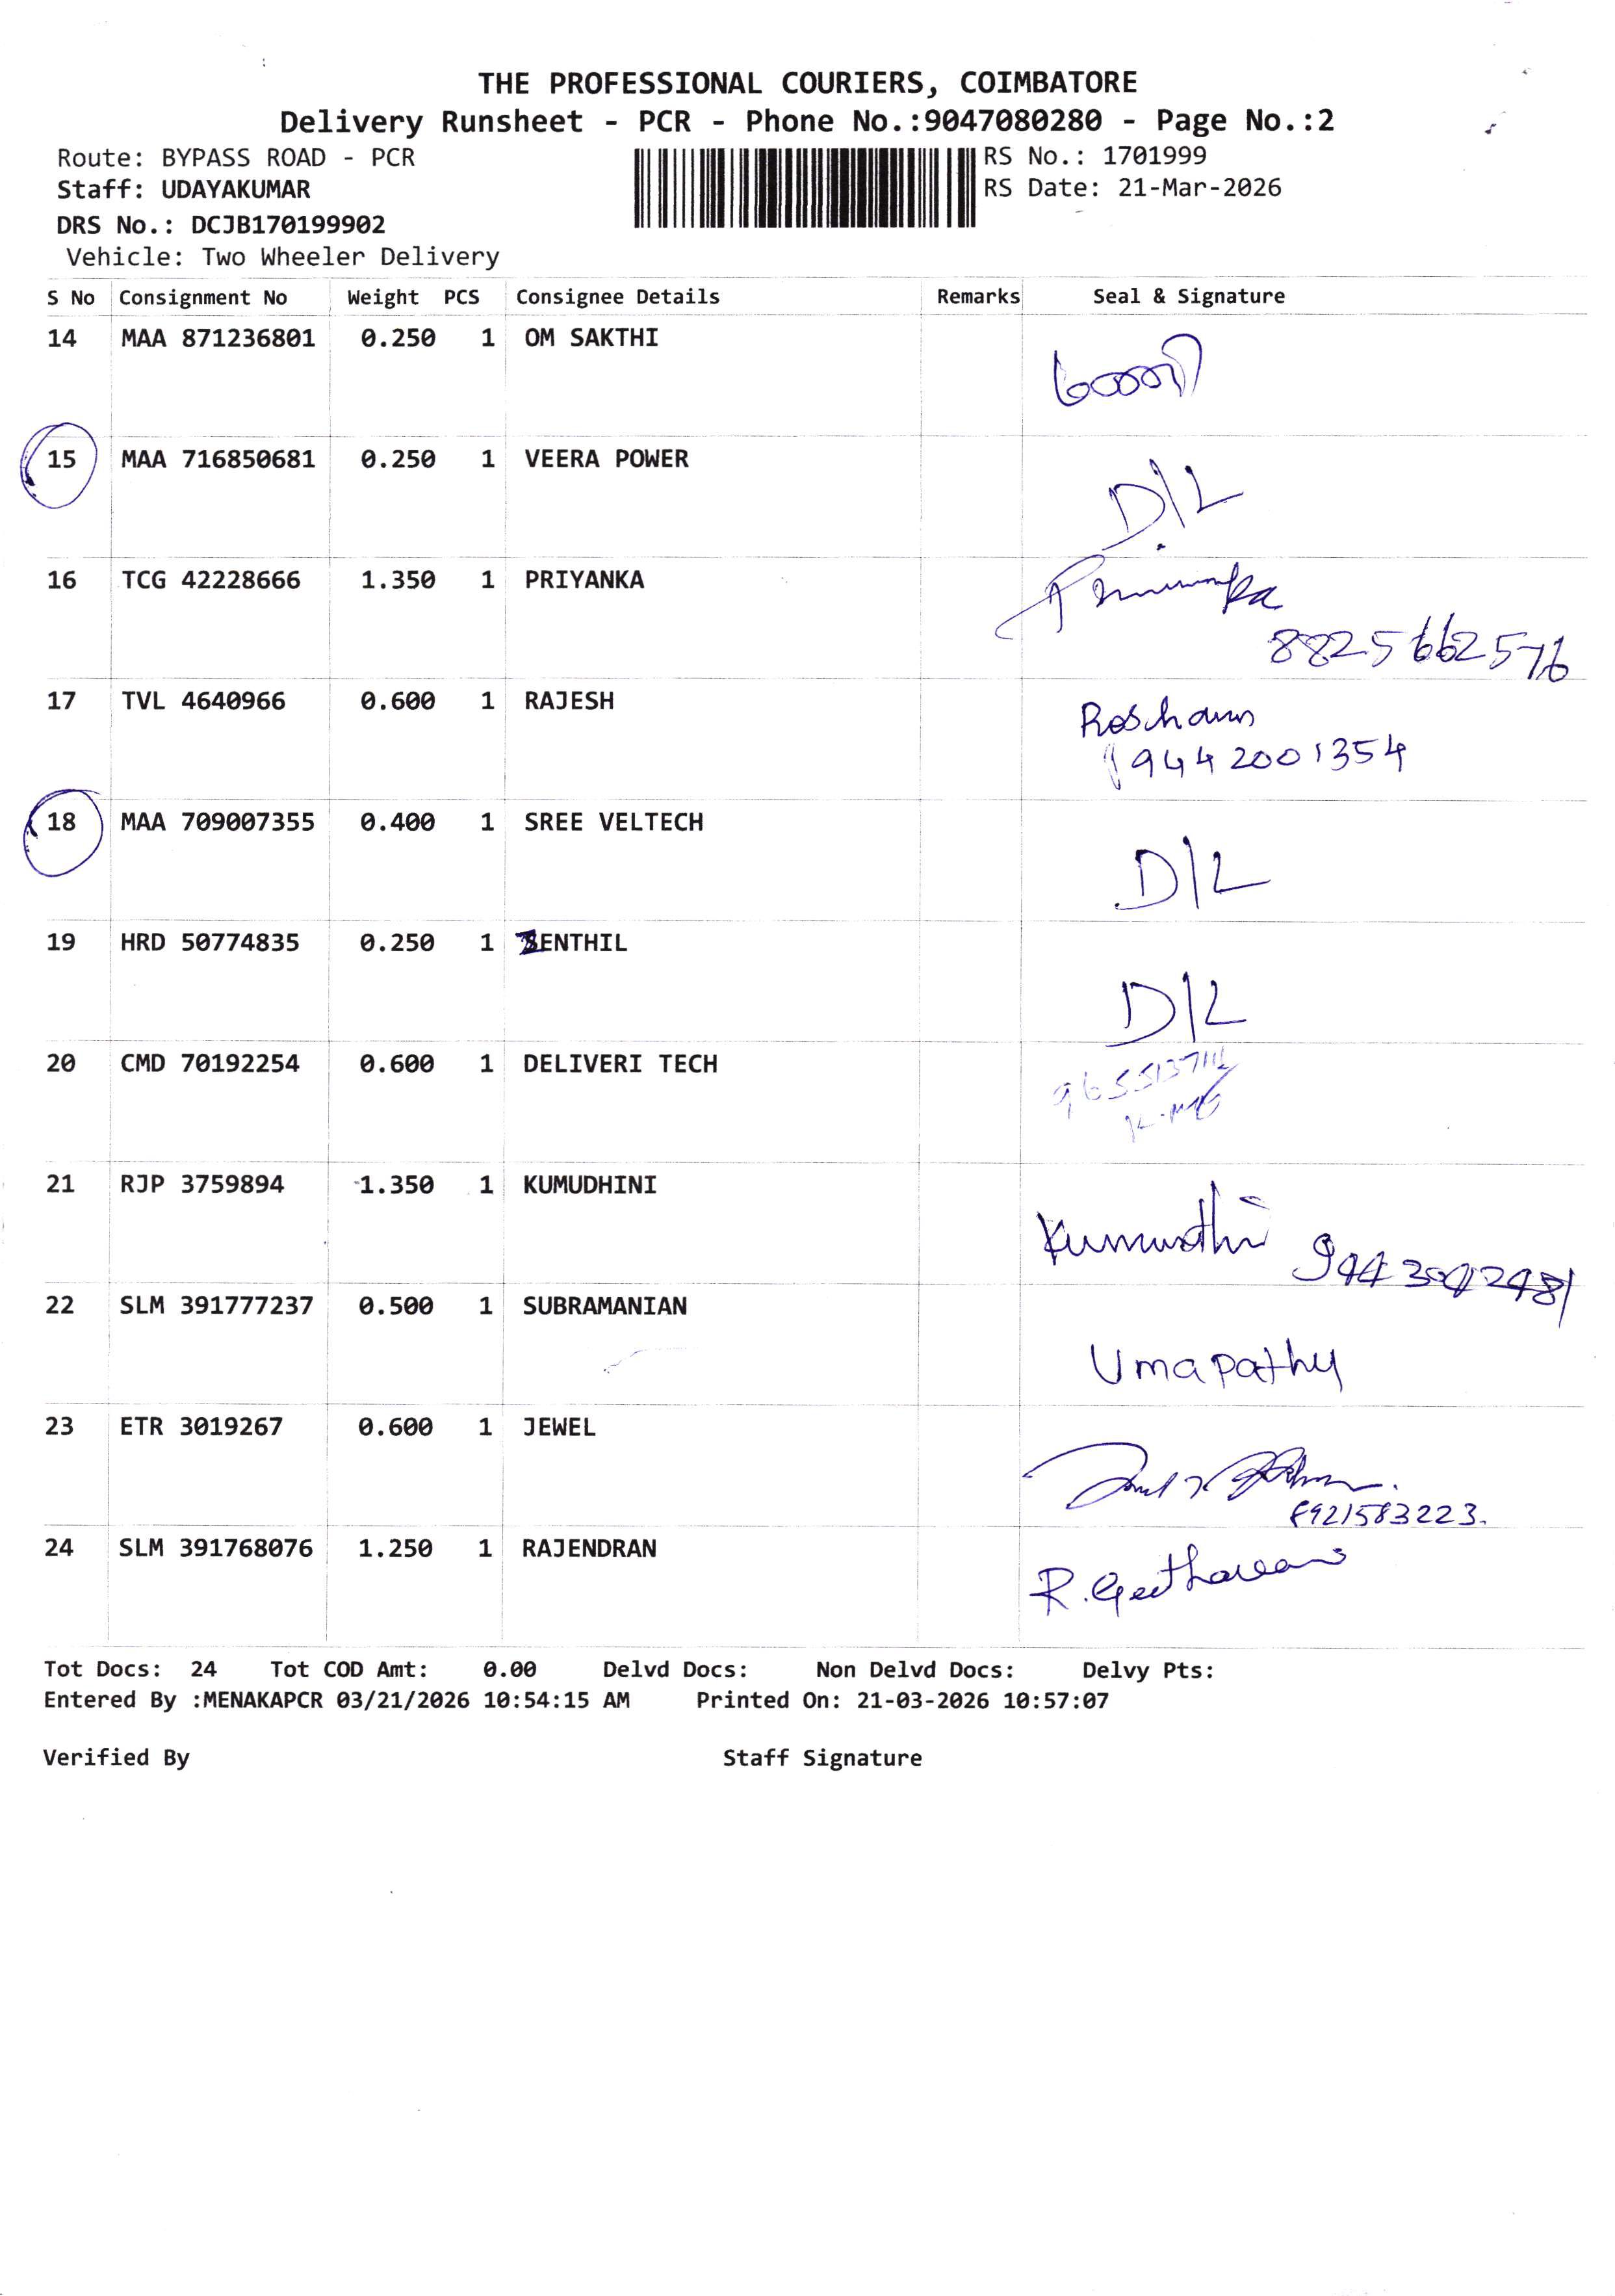 THE PROFESSIONAL COURIERS, COIMBATORE
Delivery Runsheet - PCR - Phone No.:9047080280 - Page No.:2
Route: BYPASS ROAD - PCR
RS No.: 1701999
Staff: UDAYAKUMAR
RS Date: 21-Mar-2026
DRS No.: DCJB170199902
Vehicle: Two Wheeler Delivery
S No Consignment No Weight PCS Consignee Details Remarks Seal & Signature
14 MAA 871236801 0.250 1 OM SAKTHI
15 MAA 716850681 0.250 1 VEERA POWER
D/L
16 TCG 42228666 1.350 1 PRIYANKA
8825662576
17 TVL 4640966 0.600 1 RAJESH
9442001354
18 MAA 709007355 0.400 1 SREE VELTECH
D/L
19 HRD 50774835 0.250 1 ZENTHIL
D/L
20 CMD 70192254 0.600 1 DELIVERI TECH
21 RJP 3759894 1.350 1 KUMUDHINI
22 SLM 391777237 0.500 1 SUBRAMANIAN
Umapathy
23 ETR 3019267 0.600 1 JEWEL
8921583223.
24 SLM 391768076 1.250 1 RAJENDRAN
Tot Docs: 24 Tot COD Amt: 0.00 Delvd Docs: Non Delvd Docs: Delvy Pts:
Entered By :MENAKAPCR 03/21/2026 10:54:15 AM Printed On: 21-03-2026 10:57:07
Verified By Staff Signature